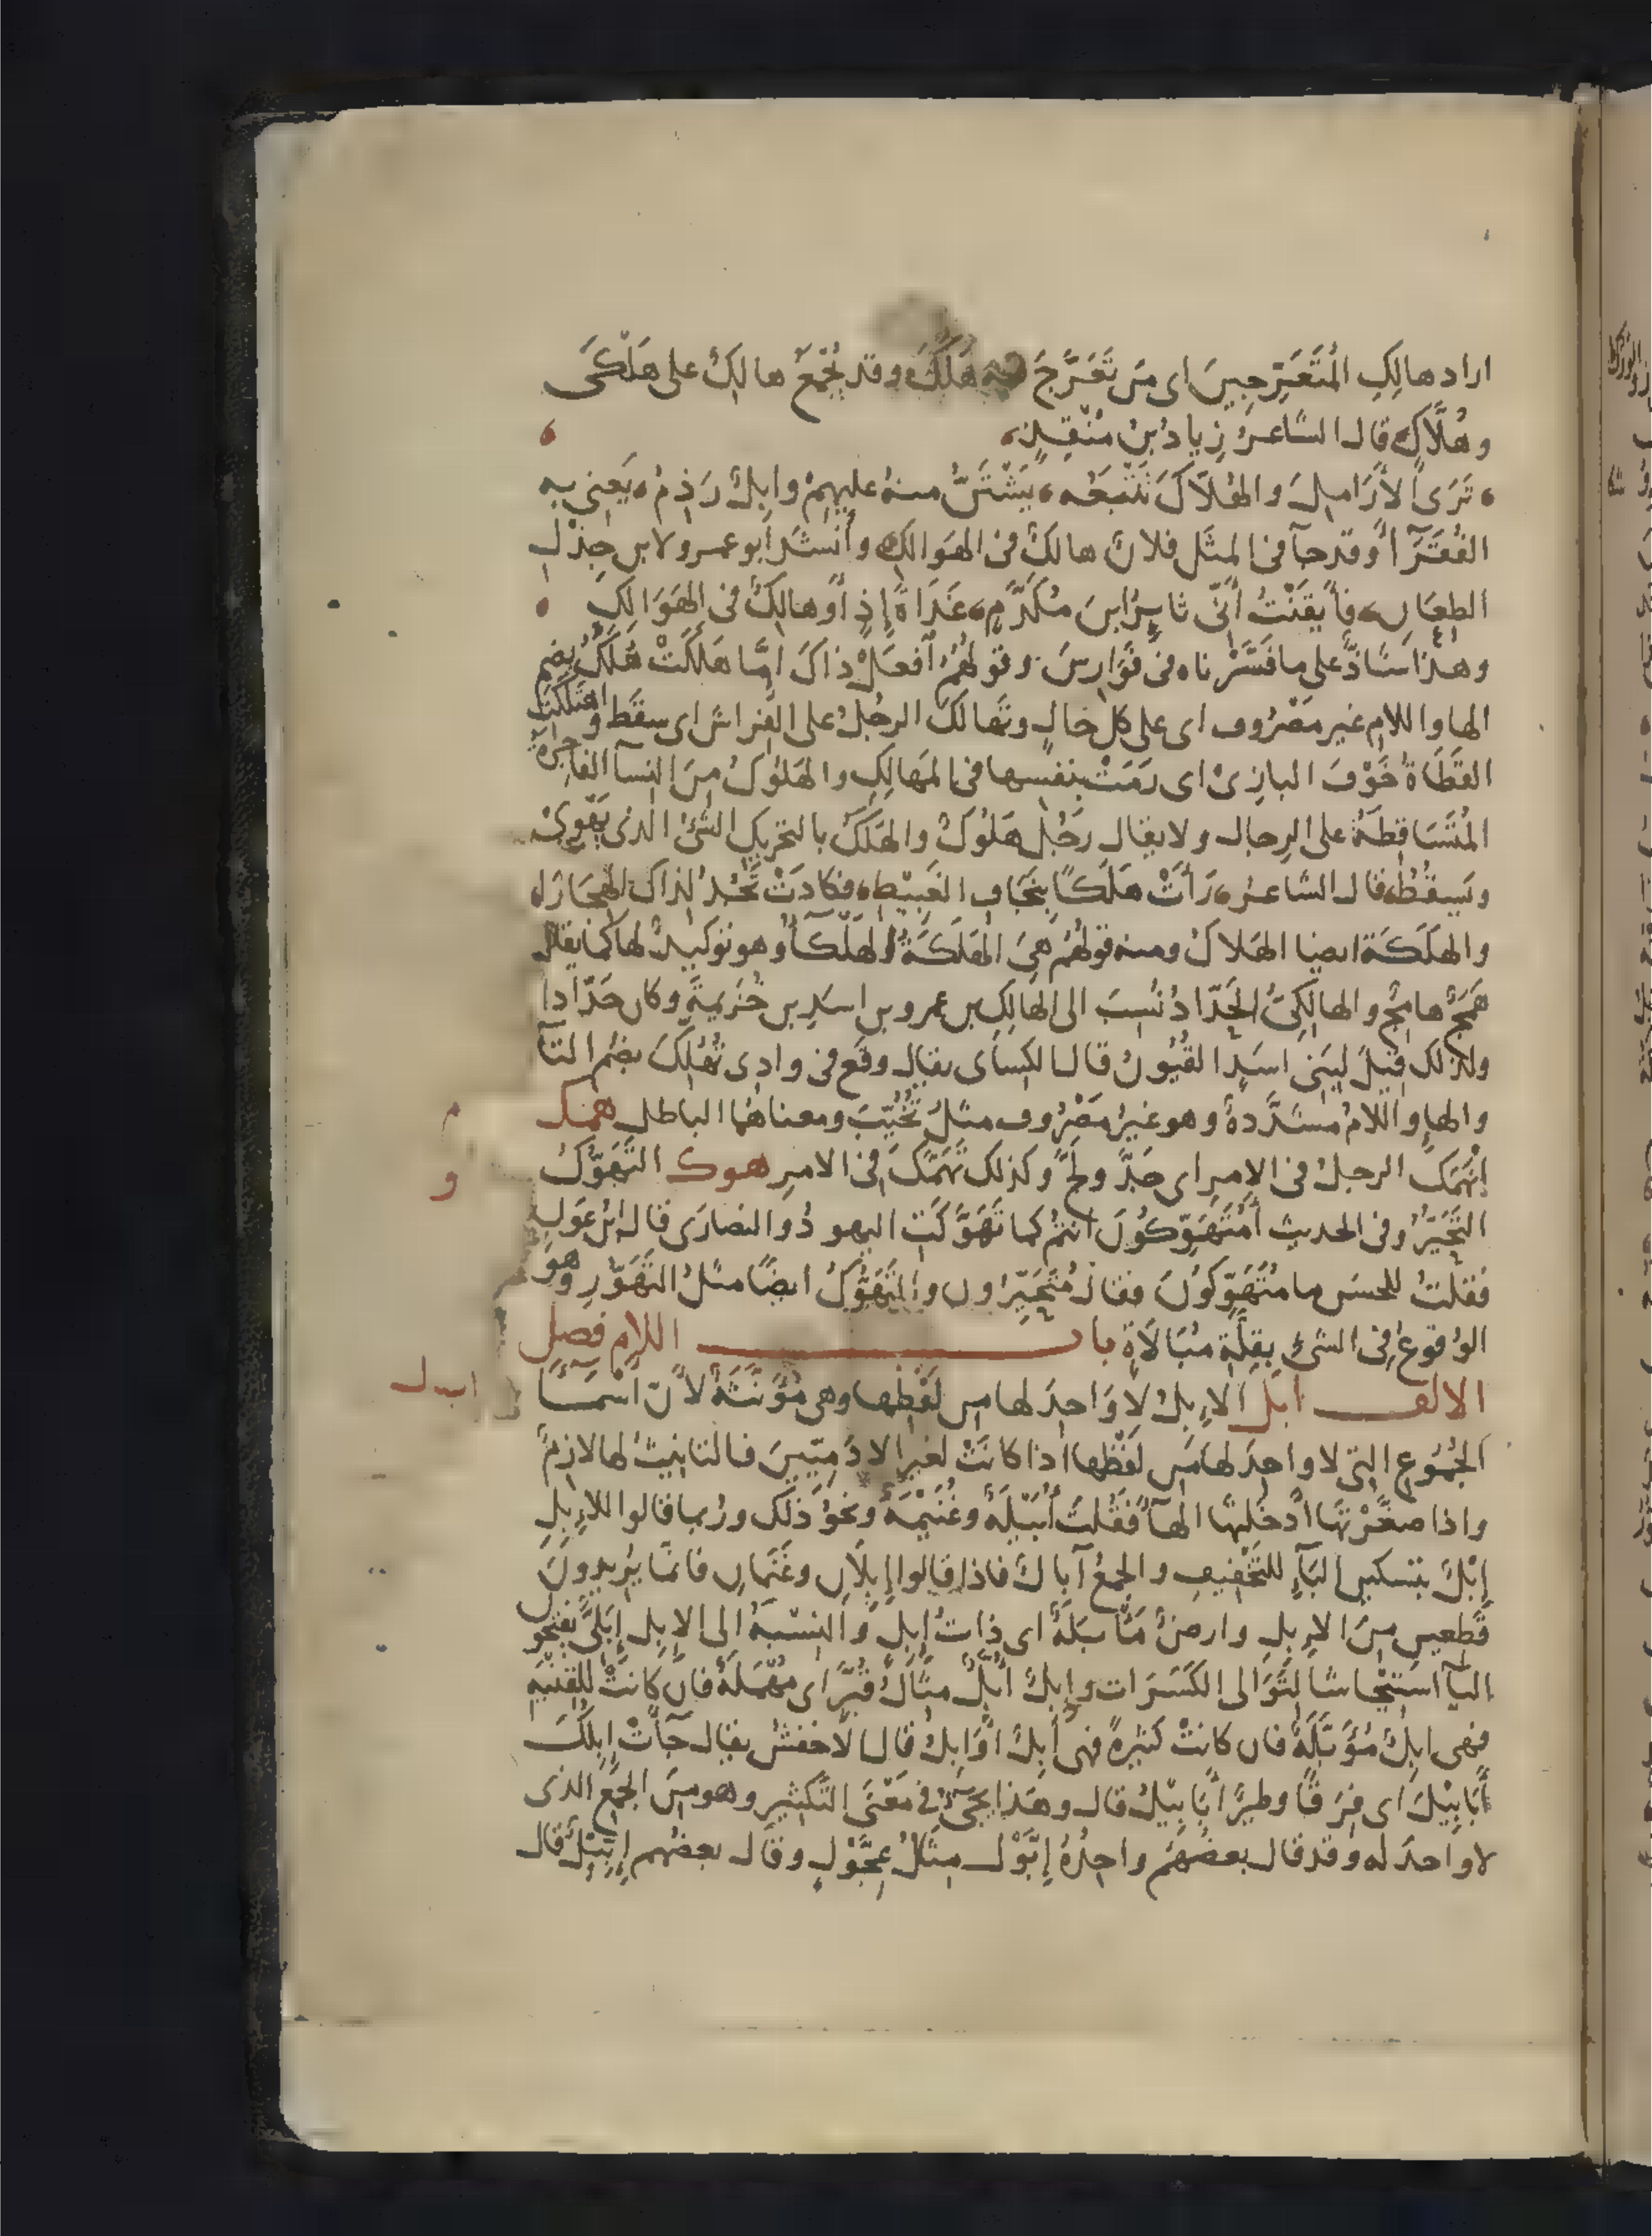 اراد هالِكِ المُتَعَرِّجِينَ اى مَن تَعَرَّجَ فيه هَلَكَ وقد يُجْمَعُ هالِكٌ على هَلْكَى
وهُلَّاكٍ قال الشاعرُ زيادُ بنُ مُنْقِذٍ
تَرَى الأَرَامِلَ والهُلّاكَ تَتْبَعُه يَسْتَنُّ منهُ عليهِمْ وابِلٌ رَذِمُ يَعنِى به
الفُقَرَآءَ وقد جآ فى المثَل فلانٌ هالكٌ فى الهَوالِكِ وأنشدَ أبو عمرو لابنِ جِذْلِ
الطِعَانِ فأيقَنْتُ أَنّى ثايِرُ ابنِ مُكَدَّمٍ غَدَاةَ إِذٍ أو هالِكٌ فى الهَوَالِكِ
وهذا شاذٌّ على ما فَسَّرْناه فى فَوَارِسَ وقولُهُمْ افعَلْ ذاكَ اِمّا هَلَكَتْ هُلُكُ بضم
الها واللامِ غير مصْرُوف اى على كل حالٍ وتَهالَكَ الرجُلُ على الفِراشِ اى سقَط واهتَلَكَتِ
القَطَاةُ خَوْفَ البازِىْ اى رَمَتْ بنفسِها فى المَهالِكِ والهَلوُكُ مِنَ النِسآ الفاجِرَةُ
المُتَسَاقِطَةُ على الرِجالِ ولا يقال رَجُلٌ هَلُوكٌ والهَلَكُ بالتحريكِ الشئُ الذى يَهْوِىْ
ويَسقُطُ قال الشاعرُ رَأَتْ هَلَكًا بِنِجَافِ الغَبِيْطِ فكادَتْ تَجُدُّ لِذاكَ الهِجَارا
والهَلَكَة ايضا الهَلاكُ ومنه قولُهُم هِىَ الهَلَكَةُ الهَلْكَآءُ وهو توكيدٌ لها كما يقالُ
هَمَجٌ هامِجٌ والهالِكِىُّ الحَدّادُ نُسِبَ الى الهَالِكِ بن عمرو بنِ اسَدِ بن خُزَيمةَ وكان حَدّادا
ولذلك قِيْلَ لِبَنى اسَدٍ القُيُونُ قال الكِساى يقال وقَع فى وادِى تُهُلِّكَ بضم التآ
والهاِ واللامُ مشدَّدةٌ وهو غيرُ مَصْرُوف مثلُ تُخُيِّبَ ومعناهُما الباطل همك
م
اِنْهَمَكَ الرجلُ فى الامرِ اى جَدَّ ولَجَّ وكذلك تَهَمَّكَ فى الامرِ هوك التَهَوُّكُ
و
التَحَيُّرُ وفى الحديث أَمُتَهَوِّكُونَ انتُم كما تَهَوَّكَتِ اليهودُ والنصارَى قال ابنُ عَوْنٍ
فقلتُ للحسَن ما مُتَهَوِّكُونَ فقال مُتَحَيِّرُون والتَهَوُّكُ ايضًا مثلُ التَهَوُّرِ وهوَ
الوُقوعُ فى الشىِ بِقِلَّةِ مُبَالَاةٍ باب اللام فصل
الالف ابل الاِبِلُ لا وَاحِدَ لها من لَفْظِها وهى مُؤَنَّثَةٌ لأنّ اَسْمَآ
اب ل
الجُمُوعِ التى لا واحِدَ لها مِن لَفْظِها اذا كانَتْ لغيرِ الادَمِيّيِنَ فالتانِيثُ لها لازِمٌ
واذا صغّرْتَها ادخَلتَها الهآءَ فقُلتَ أُبَيْلَةٌ وغُنَيْمَةٌ ونحوُ ذلك ورُبما قالوا للاِبِلِ
إِبْلٌ بتسكينِ البَآءِ للتَخْفِيفِ والجمعُ آبالٌ فاذا قالوا إِبِلاَنِ وغَنَمانِ فانّما يُرِيدونَ
قَطِعينِ مِنَ الإِبِلِ وارضٌ مَأْبَلَةٌ اى ذاتُ إِبِلٍ والنِسْبَةُ الى الإِبِلِ إِبَلِىٌّ بفتحِ
البآ استيحاشًا لتَوَالى الكَسَرَات وإِبِلٌ أُبَّلٌ مثالُ قُبَّرٍ اى مُهْمَلَةٌ فان كانَتْ للقِنْيَةِ
فهى ابِلٌ مُؤَبَّلَةٌ فان كانتْ كثيرةً فهى أَبِلٌ اَوَابِلُ قال الاخفشُ يقال جَآءَتْ اِبِلُكَ
أَبَابِيْلَ اى فِرَقًا وطيرًا أَبَابِيْلَ قال وهَذا يجئُ فى مَعْنَى التَكْثِيرِ وهو مِنَ الجَمْعِ الذى
لا واحدَ له وقد قال بعضُهُم واحِدُهُ إِبَّوْلٌ مثالُ عِجَّوْلٍ وقال بعضُهم إِبِّيْلٌ قال